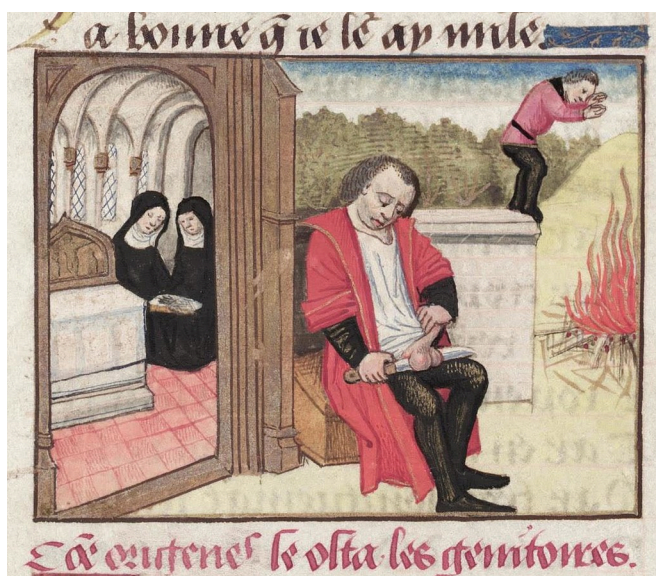 La bonne q̃ ie lẽ ay mile
Cõe origenes se osta les genitoires.